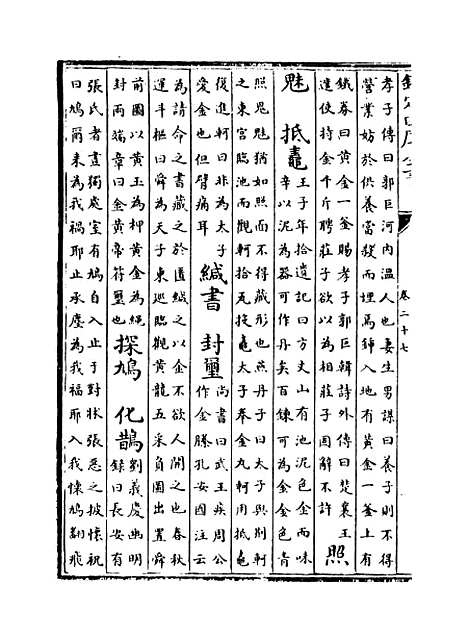 欽定四庫全書
卷二十七
孝子傳曰郭巨河内溫人也妻生男謀曰養子則不得
營業妨於供養當殺而埋焉鍤入地有黄金一釜上有
鐵劵曰黄金一釜賜孝子郭巨韓詩外傳曰楚襄王
遣使持金千斤聘莊子欲以為相莊子固解不許
照
魅 抵鼃
王子年拾遺記曰方丈山有池泥色金而味
辛以泥為器可作丹矣百鍊可為金金色青
照鬼魅猶如照而不得藏形也燕丹子曰太子與荆軻
之東宫臨池而觀軻拾瓦投龜太子奉金丸軻用抵龜
復進軻曰非為太子
愛金也但臂痛耳
緘書 封璽
尚書曰武王疾周公
作金縢孔安國注云
為請命之書藏之於匱緘之以金不欲人開之也春秋
運斗樞曰舜為天子東巡臨觀黄龍五采負圖出置舜
前圖以黄玉為柙黄金為繩
封兩端章曰金黄帝符璽也
探鳩 化鵲
劉義慶幽明
錄曰長安有
張氏者晝獨處室有鳩自入止于對牀張惡之披懷祝
曰鳩爾来為我禍耶止承塵為我福耶入我懷鳩翻飛